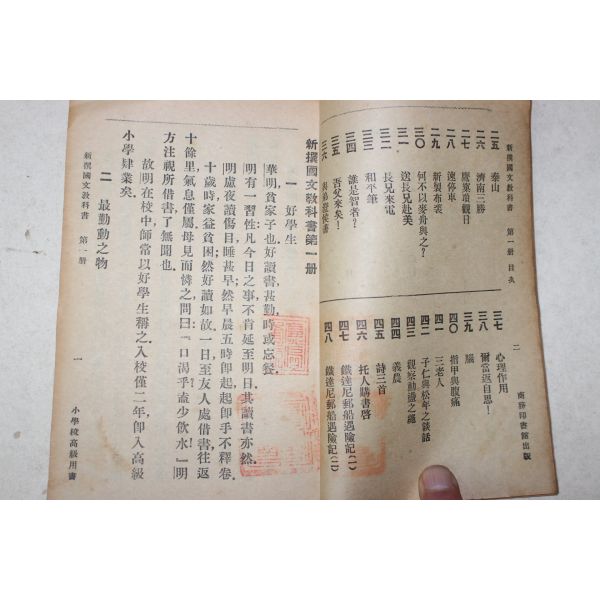 新撰國文教科書 第一册 目次
二
商務印書館出版
二五 泰山
二六 濟南三勝
二七
二八 速停車
二九 新製布裘
三〇 何不以麥舟與之?
三一 送長兄赴美
三二 長兄來電
三三 和平筆
三四 誰是智者?
三五 吾父來矣!
三六
三七 心理作用
三八 爾當返自思!
三九 腦
四〇 指甲與腹痛
四一 三老人
四二 子仁與松年之談話
四三 觀察動議之繩
四四 義農
四五 詩三首
四六 托人購書啓
四七 鐵達尼郵船遇險記(一)
四八 鐵達尼郵船遇險記(二)
新撰國文教科書第一册
一 好學生
華明貧家子也好讀書甚勤,時或忘餐.
明有一習性凡今日之事不肯延至明日.其讀書亦然.
明慮夜讀傷目睡甚早然早晨五時卽起起卽手不釋卷.
十歲時家益貧困然好讀如故.一日至友人處借書往返
十餘里氣息僅屬母見而憐之問曰『口渴乎盍少飲水』明
方注視所借書了無聞也.
故明在校中師常以好學生稱之.入校僅二年卽入高級
小學肄業矣.
二 最勤動之物
新撰國文教科書 第一册
一
小學校高級用書